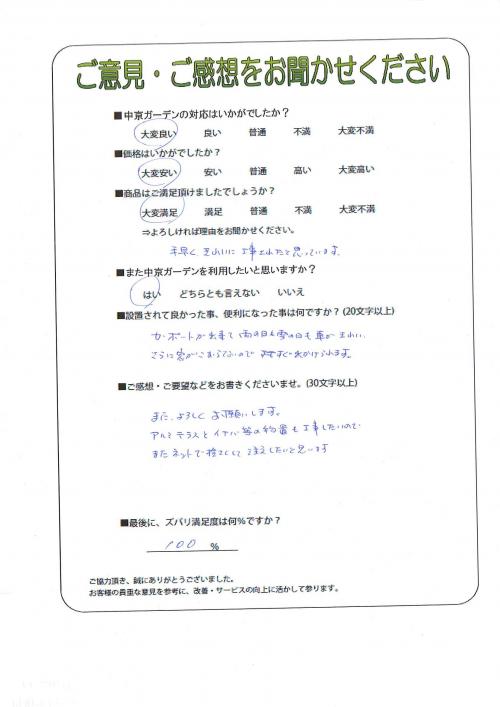 ご意見・ご感想をお聞かせください
■中京ガーデンの対応はいかがでしたか？
大変良い 良い 普通 不満 大変不満
■価格はいかがでしたか？
大変安い 安い 普通 高い 大変高い
■商品はご満足頂けましたでしょうか？
大変満足 満足 普通 不満 大変不満
⇒よろしければ理由をお聞かせください。
手早く、きれいに工事されたと思っています。
■また中京ガーデンを利用したいと思いますか？
はい どちらとも言えない いいえ
■設置されて良かった事、便利になった事は何ですか？(20文字以上)
カーポートが出来て雨の日も雪の日も車がきれい、
さらに窓がこおらないので すぐ出かけられます。
■ご感想・ご要望などをお書きくださいませ。(30文字以上)
また、よろしくお願いします。
アルミテラスとイナバ等の物置も工事したいので
またネットで 注文したいと思います
■最後に、ズバリ満足度は何％ですか？
100 ％
ご協力頂き、誠にありがとうございました。
お客様の貴重な意見を参考に、改善・サービスの向上に活かして参ります。